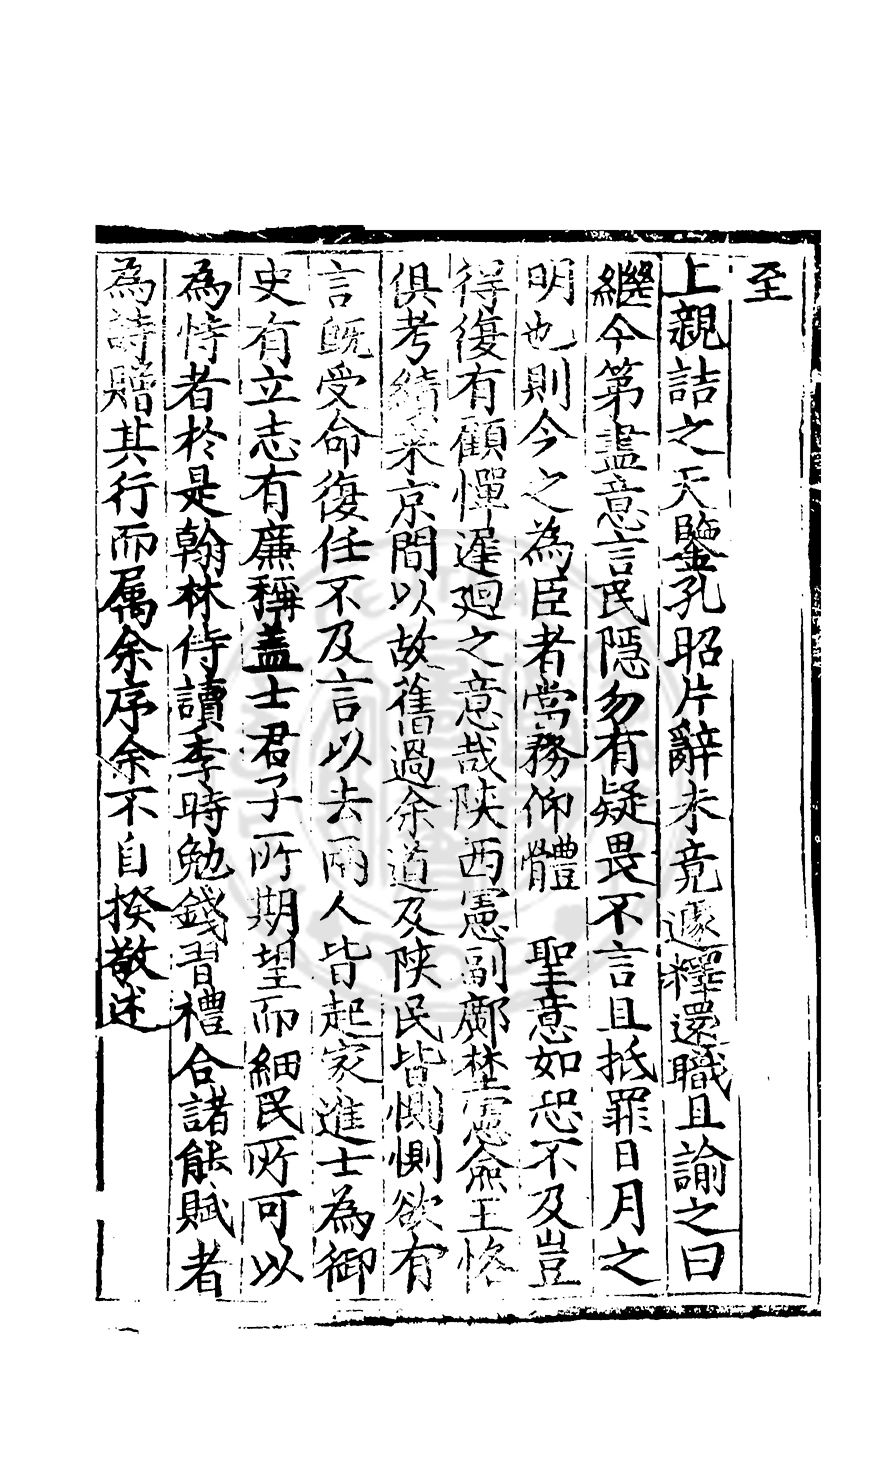 至
上親詰之天鑒孔昭片辭未竟遽釋還職且諭之曰
繼今第盡意言民隱勿有疑畏不言且抵罪日月之
明也則今之為臣者當務仰體　聖意如恐不及豈
得復有顧憚遲廻之意哉陝西憲副鄺埜憲僉王恪
俱考績來京間以故舊過余道及陝民皆惻惻欲有
言既受命復任不及言以去兩人皆起家進士為御
史有立志有廉稱蓋士君子所期望而細民所可以
為恃者於是翰林侍讀季時勉錢習禮合諸能賦者
為詩贈其行而属余序余不自揆敬述